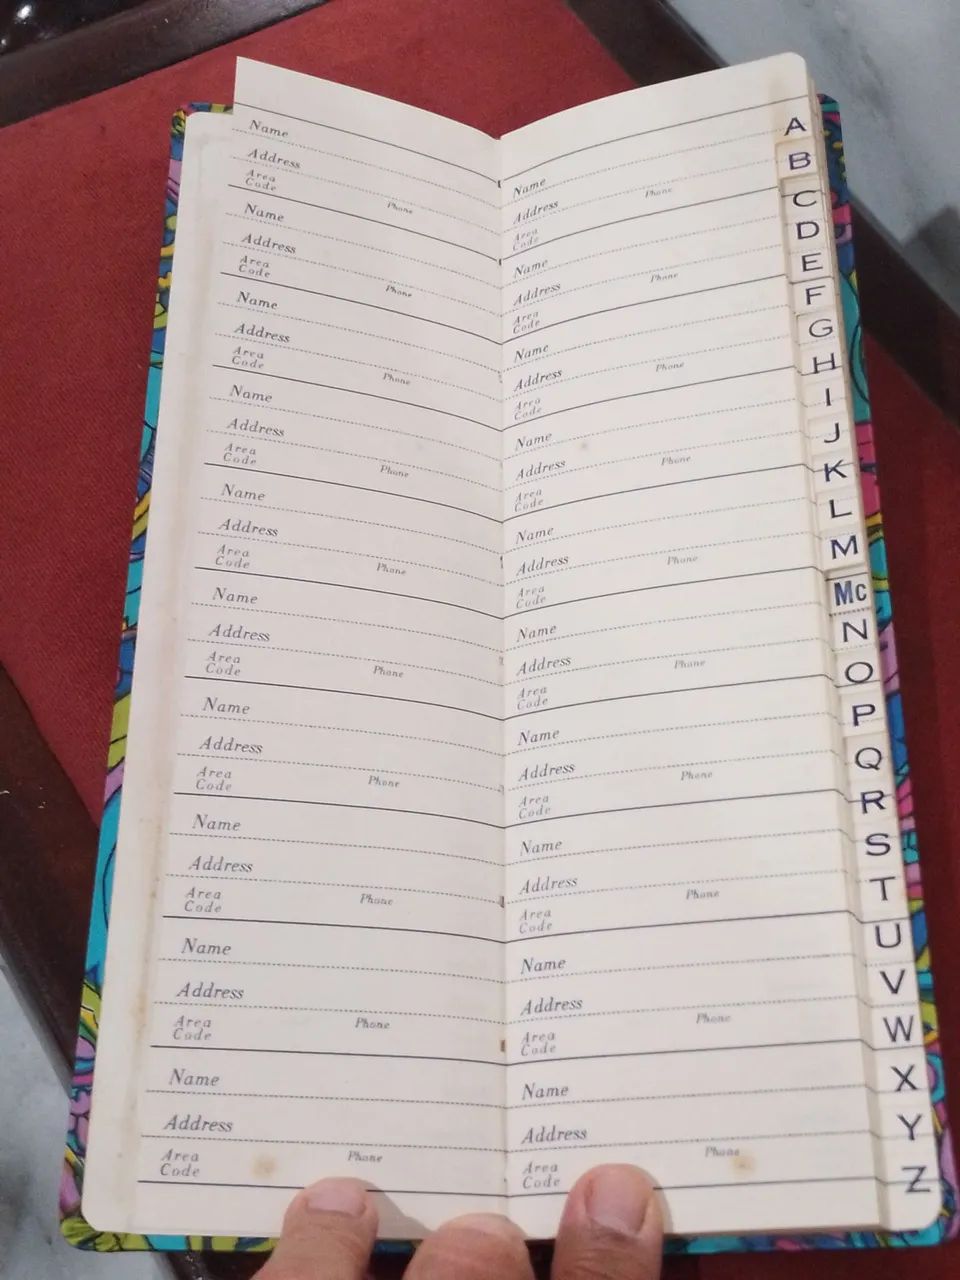 Name
Address
Area
Code Phone
Name
Address
Area
Code Phone
Name
Address
Area
Code Phone
Name
Address
Area
Code Phone
Name
Address
Area
Code Phone
Name
Address
Area
Code Phone
Name
Address
Area
Code Phone
Name
Address
Area
Code Phone
Name
Address
Area
Code Phone
Name
Address
Area
Code Phone
Name
Address
Area
Code Phone
Name
Address
Area
Code Phone
Name
Address
Area
Code Phone
Name
Address
Area
Code Phone
Name
Address
Area
Code Phone
Name
Address
Area
Code Phone
Name
Address
Area
Code Phone
Name
Address
Area
Code Phone
Name
Address
Area
Code Phone
Name
Address
Area
Code Phone
A
B
C
D
E
F
G
H
I
J
K
L
M
Mc
N
O
P
Q
R
S
T
U
V
W
X
Y
Z